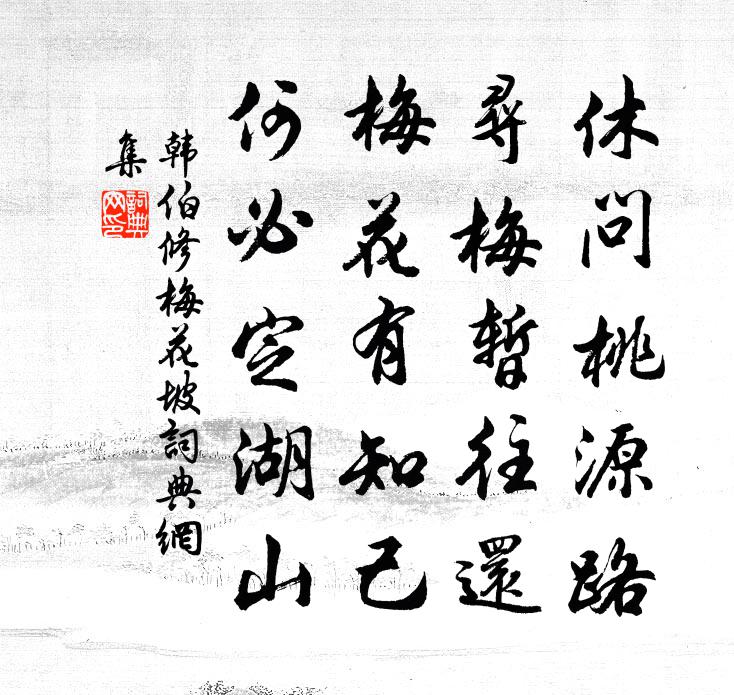 休問桃源路
尋梅暫往還
梅花有知己
何必定湖山
韩伯修梅花坡詞典網
集
詞典网印